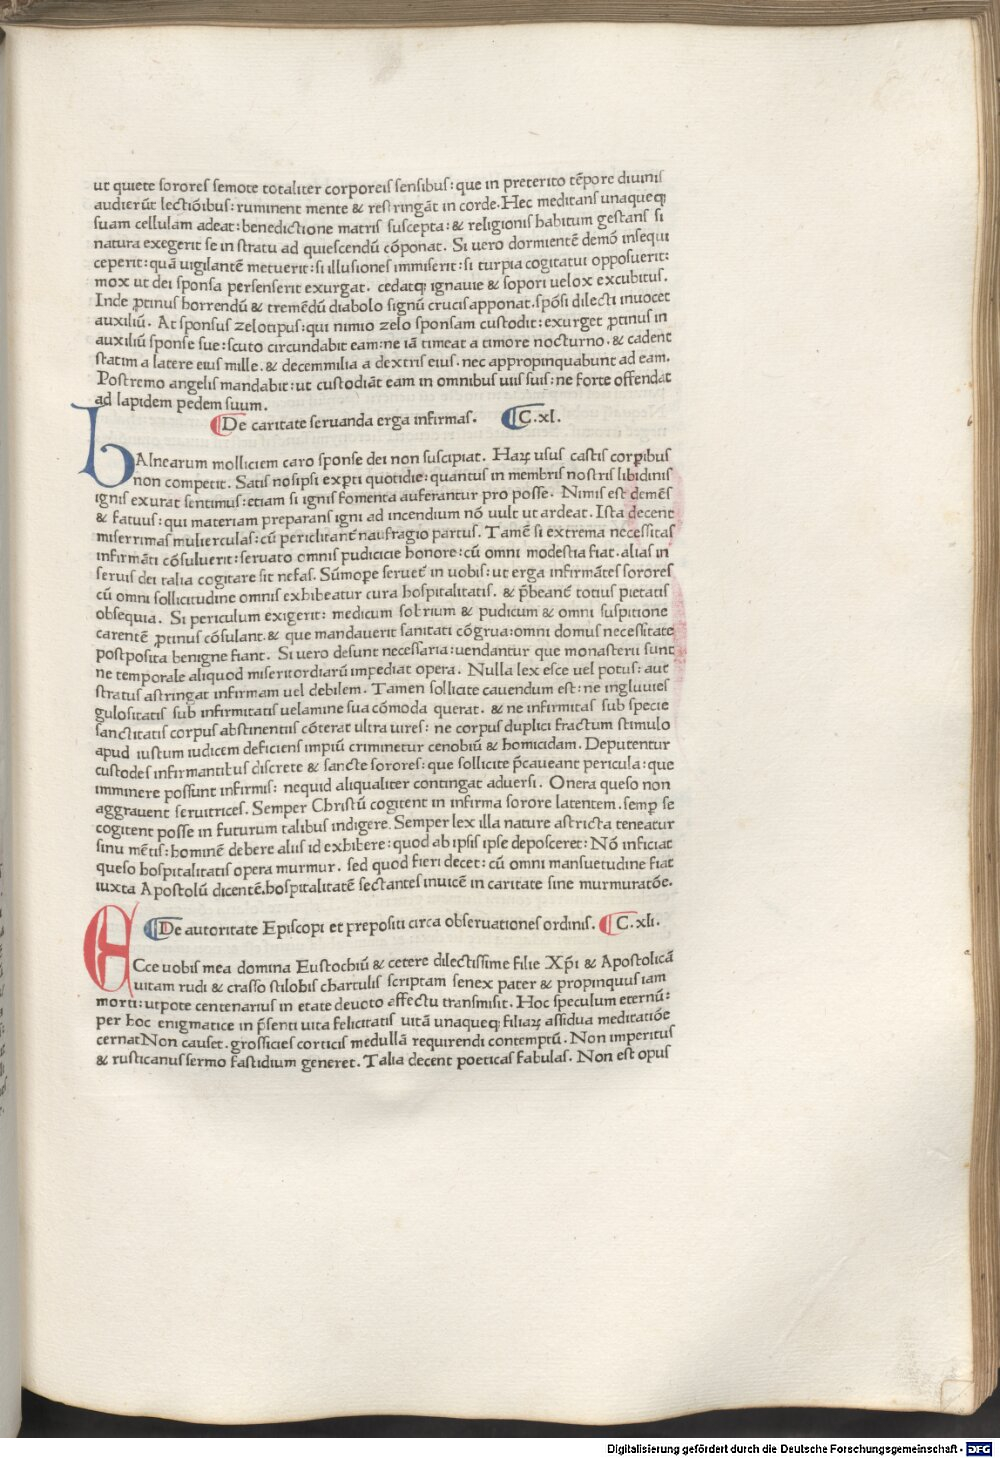 ut quiete sorores semote totaliter corporeis sensibus: que in preterito tẽpore diuinis
audierũt lectiõibus: ruminent mente & restringãt in corde. Hec meditans unaqueqꝫ
suam cellulam adeat: benedictione matris suscepta: & religionis habitum gestans si
natura exegerit se in stratu ad quiescendũ cõponat. Si uero dormientẽ demõ insequi
ceperit: quã uigilantẽ metuerit: si illusiones immiserit: si turpia cogitatui opposuerit:
mox ut dei sponsa persenserit exurgat. cedatqꝫ ignauie & sopori uelox excubitus.
Inde ꝓtinus horrendũ & tremẽdũ diabolo signũ crucis apponat. spõsi dilecti inuocet
auxiliũ. At sponsus zelotipus: qui nimio zelo sponsam custodit: exurget ꝓtinus in
auxiliũ sponse sue: scuto circundabit eam: ne iã timeat a timore nocturno. & cadent
statim a latere eius mille. & decemmilia a dextris eius. nec appropinquabunt ad eam.
Postremo angelis mandabit: ut custodiãt eam in omnibus uiis suis: ne forte offendat
ad lapidem pedem suum.
De caritate seruanda erga infirmas. C.xl.
bAlnearum molliciem caro sponse dei non suscipiat. Haꝝ usus castis corꝑibus
non competit. Satis nosipsi exꝑti quotidie: quantus in membris nostris libidinis
ignis exurat sentimus: etiam si ignis fomenta auferantur pro posse. Nimis est demẽs
& fatuus: qui materiam preparans igni ad incendium nõ uult ut ardeat. Ista decent
miserrimas mulierculas: cũ periclitant̃ naufragio partus. Tamẽ si extrema necessitas
infirmãti cõsuluerit: seruato omnis pudicicie honore: cũ omni modestia fiat. alias in
seruis dei talia cogitare sit nefas. Sũmoꝑe seruet̃ in uobis: ut erga infirmãtes sorores
cũ omni sollicitudine omnis exhibeatur cura hospitalitatis. & p̃beant̃ totius pietatis
obsequia. Si periculum exigerit: medicum sobrium & pudicum & omni suspitione
carentẽ ꝓtinus cõsulant. & que mandauerit sanitati cõgrua: omni domus necessitate
postposita benigne fiant. Si uero desunt necessaria: uendantur que monasterii sunt
ne temporale aliquod misericordiarũ impediat opera. Nulla lex esce uel potus: aut
stratus astringat infirmam uel debilem. Tamen sollicite cauendum est: ne ingluuies
gulositatis sub infirmitatis uelamine sua cõmoda querat. & ne infirmitas sub specie
sanctitatis corpus abstinentiis cõterat ultra uires: ne corpus duplici fractum stimulo
apud iustum iudicem deficiens impiũ criminetur cenobiũ & homicidam. Deputentur
custodes infirmantibus discrete & sancte sorores: que sollicite p̃caueant pericula: que
imminere possunt infirmis: nequid aliqualiter contingat aduersi. Onera queso non
aggrauent seruitrices. Semper Christũ cogitent in infirma sorore latentem. semꝑ se
cogitent posse in futurum talibus indigere. Semper lex illa nature astricta teneatur
sinu mẽtis: hominẽ debere aliis id exhibere: quod ab ipsis ipse deposceret: Nõ inficiat
queso hospitalitatis opera murmur. sed quod fieri decet: cũ omni mansuetudine fiat
iuxta Apostolũ dicentẽ. hospitalitatẽ sectantes inuicẽ in caritate sine murmuratõe.
De autoritate Episcopi et prepositi circa obseruationes ordinis. C.xli.
ECce uobis mea domina Eustochiũ & cetere dilectissime filie Xp̃i & Apostolicã
uitam rudi & crasso stilo bis chartulis scriptam senex pater & propinquus iam
morti: utpote centenarius in etate deuoto affectu transmisit. Hoc speculum eternũ:
per hoc enigmatice in p̃senti uita felicitatis uitã unaqueqꝫ filiaꝝ assidua meditatiõe
cernat Non causet. grossicies corticis medullã requirendi contemptũ. Non imperitus
& rusticanus sermo fastidium generet. Talia decent poeticas fabulas. Non est opus
Digitalisierung gefördert durch die Deutsche Forschungsgemeinschaft - DFG